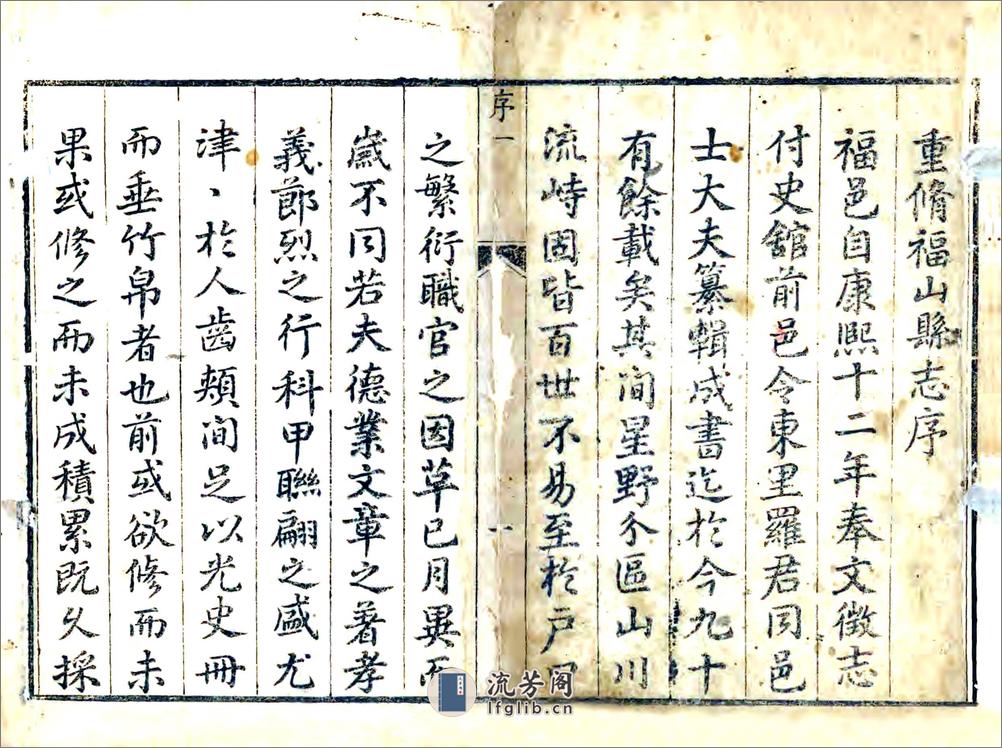 重脩福山縣志序
福邑自康熙十二年奉文徵志
付史舘前邑令東里羅君同邑
士大夫纂輯成書迄於今九十
有餘載矣其間星野分區山川
流峙固皆百世不易至於戸口
序一
一
之繁衍職官之因革已月異而
嵗不同若夫德業文章之著孝
義節烈之行科甲聯翩之盛尤
津丶於人齒頰間足以光史冊
而垂竹帛者也前或欲修而未
果或修之而未成積累既久採
流芳阁
lfglib.cn